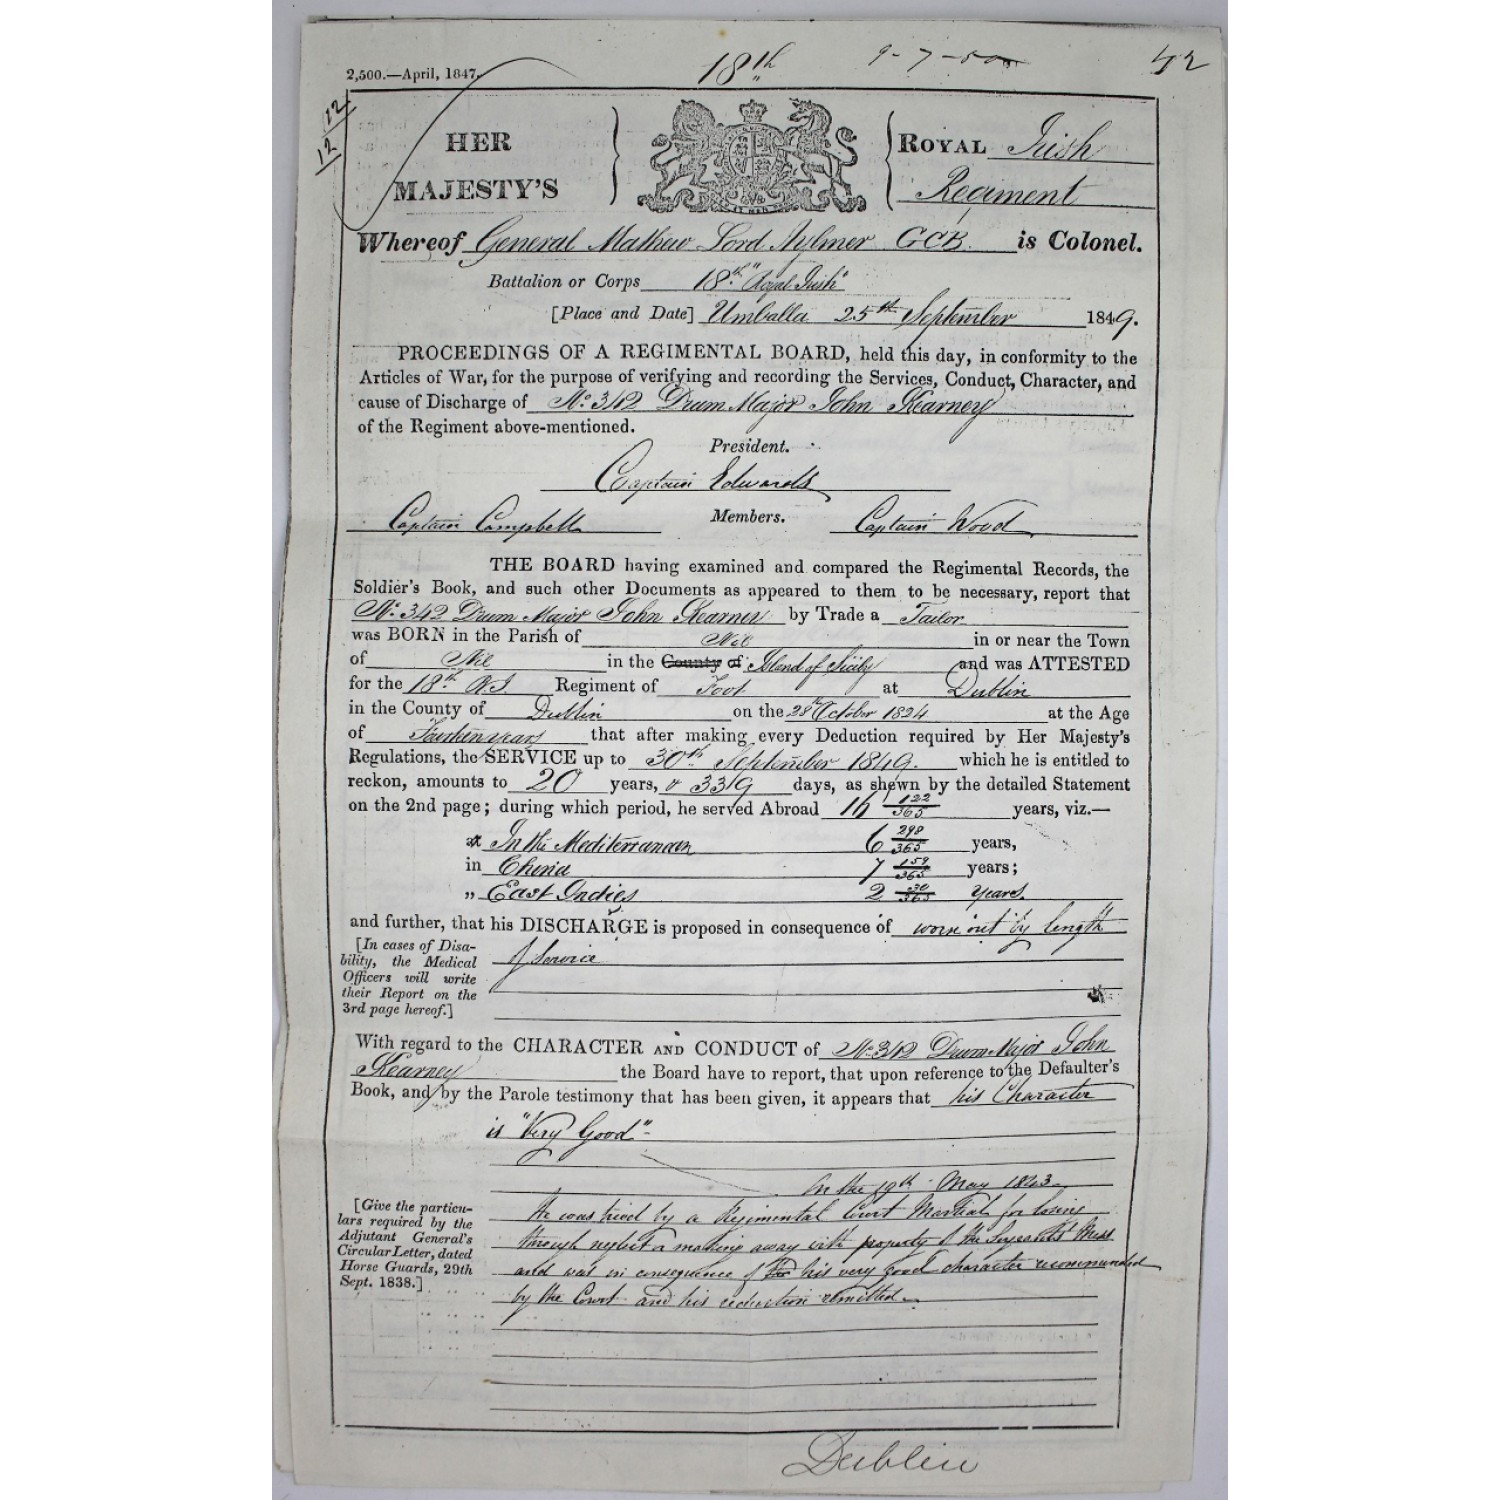 2,500.—April, 1847.
18th
9-7-50
42
12
12
HER
MAJESTY'S
ROYAL Irish
Regiment
Whereof General Mathew Lord Aylmer GCB. is Colonel.
Battalion or Corps 18th "Royal Irish"
[Place and Date] Umballa 25th September 1849.
PROCEEDINGS OF A REGIMENTAL BOARD, held this day, in conformity to the
Articles of War, for the purpose of verifying and recording the Services, Conduct, Character, and
cause of Discharge of No. 342 Drum Major John Kearney
of the Regiment above-mentioned.
President.
Captain Edwards
Captain Campbell Members. Captain Wood
THE BOARD having examined and compared the Regimental Records, the
Soldier's Book, and such other Documents as appeared to them to be necessary, report that
No. 342 Drum Major John Kearney by Trade a Tailor
was BORN in the Parish of Nil in or near the Town
of Nil in the County of Island of Sicily and was ATTESTED
for the 18th R.I. Regiment of Foot at Dublin
in the County of Dublin on the 28th October 1824 at the Age
of Fourteen years that after making every Deduction required by Her Majesty's
Regulations, the SERVICE up to 30th September 1849. which he is entitled to
reckon, amounts to 20 years, & 339 days, as shewn by the detailed Statement
on the 2nd page; during which period, he served Abroad 16 122/365 years, viz.—
In the Mediterranean 6 298/365 years,
in China 7 159/365 years;
„ East Indies 2 30/365 years.
and further, that his DISCHARGE is proposed in consequence of worn out by length
of Service
[In cases of Disa-
bility, the Medical
Officers will write
their Report on the
3rd page hereof.]
With regard to the CHARACTER AND CONDUCT of No. 342 Drum Major John
Kearney the Board have to report, that upon reference to the Defaulter's
Book, and by the Parole testimony that has been given, it appears that his Character
is "Very Good"-
On the 19th May 1843
[Give the particu-
lars required by the
Adjutant General's
Circular Letter, dated
Horse Guards, 29th
Sept. 1838.]
He was tried by a Regimental Court Martial for losing
through neglect or making away with property of the Sergeants' Mess
and was in consequence of his very good character recommended
by the Court and his reduction remitted.
Dublin